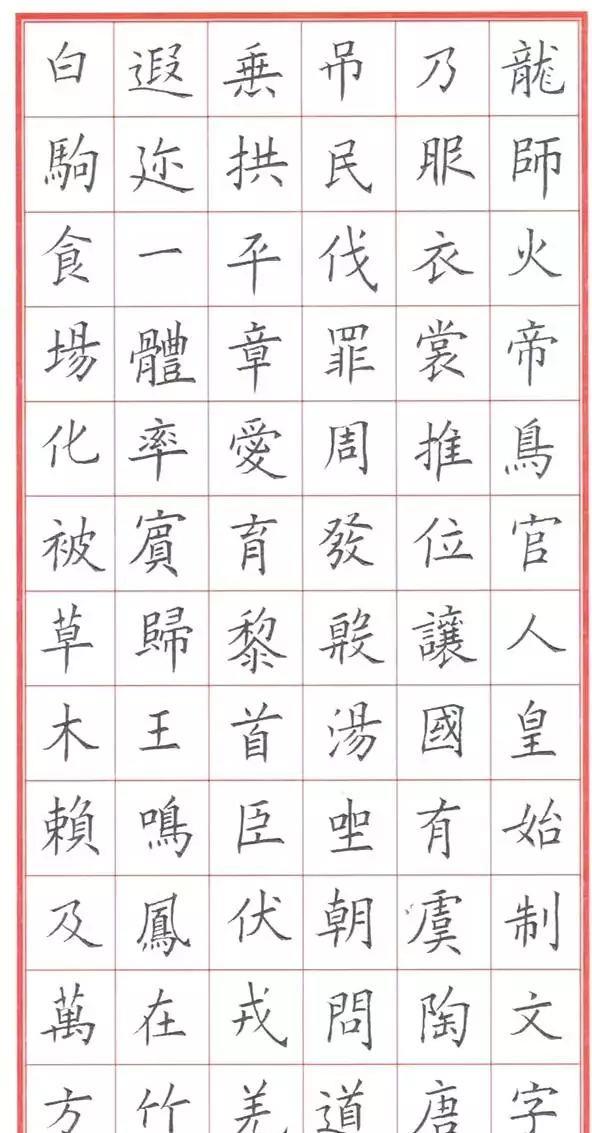 龍師火帝鳥官人皇始制文字
乃服衣裳推位讓國有虞陶唐
吊民伐罪周發殷湯坐朝問道
垂拱平章愛育黎首臣伏戎羌
遐迩一體率賓歸王鳴鳳在竹
白駒食場化被草木賴及萬方